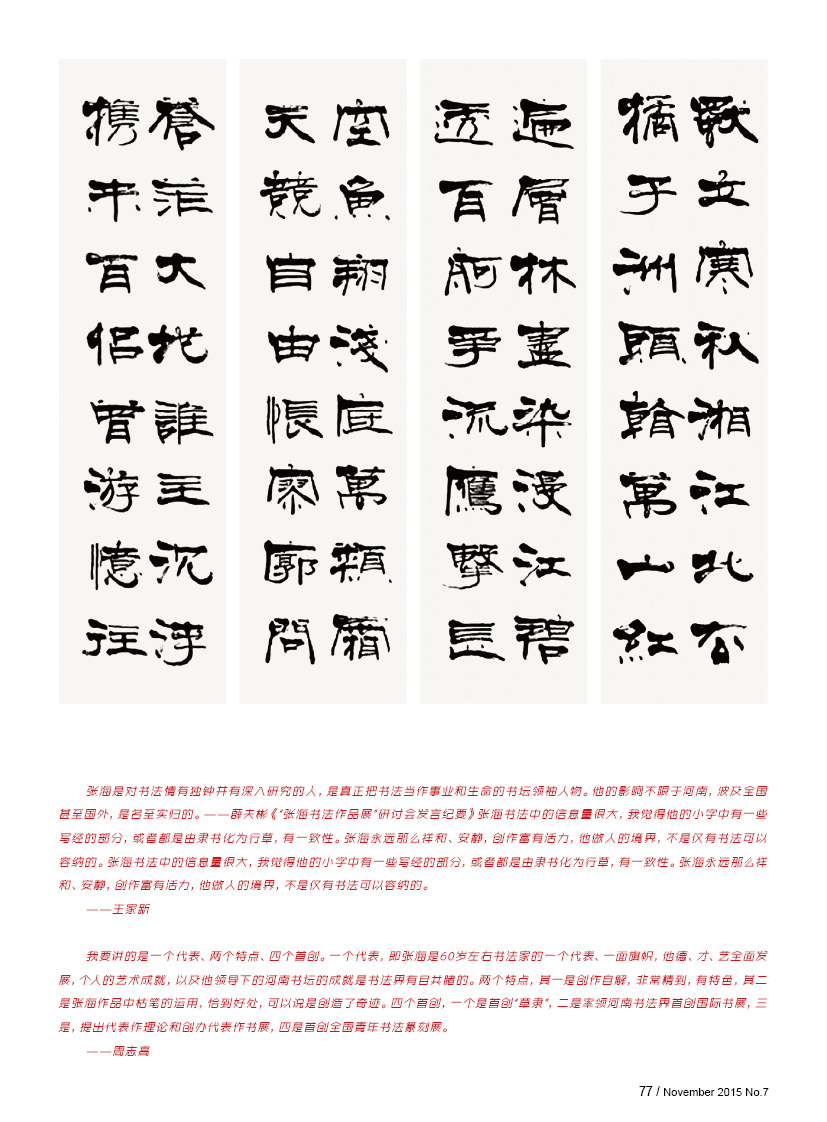 獨立寒秋湘江北去
橘子洲頭看萬山紅
遍層林盡染漫江碧
透百舸爭流鷹擊長
空魚翔淺底萬類霜
天競自由悵寥廓問
蒼茫大地誰主沉浮
携来百侣曾游憶往
张海是对书法情有独钟并有深入研究的人，是真正把书法当作事业和生命的书坛领袖人物。他的影响不限于河南，波及全国
甚至国外，是名至实归的。——薛夫彬《“张海书法作品展”研讨会发言纪要》张海书法中的信息量很大，我觉得他的小字中有一些
写经的部分，或者都是由隶书化为行草，有一致性。张海永远那么祥和、安静，创作富有活力，他做人的境界，不是仅有书法可以
容纳的。张海书法中的信息量很大，我觉得他的小字中有一些写经的部分，或者都是由隶书化为行草，有一致性。张海永远那么祥
和、安静，创作富有活力，他做人的境界，不是仅有书法可以容纳的。
——王家新
我要讲的是一个代表、两个特点、四个首创。一个代表，即张海是60岁左右书法家的一个代表、一面旗帜，他德、才、艺全面发
展，个人的艺术成就，以及他领导下的河南书坛的成就是书法界有目共睹的。两个特点，其一是创作自解，非常精到，有特色，其二
是张海作品中枯笔的运用，恰到好处，可以说是创造了奇迹。四个首创，一个是首创“草隶”，二是率领河南书法界首创国际书展，三
是，提出代表作理论和创办代表作书展，四是首创全国青年书法篆刻展。
——周志高
77 / November 2015 No.7